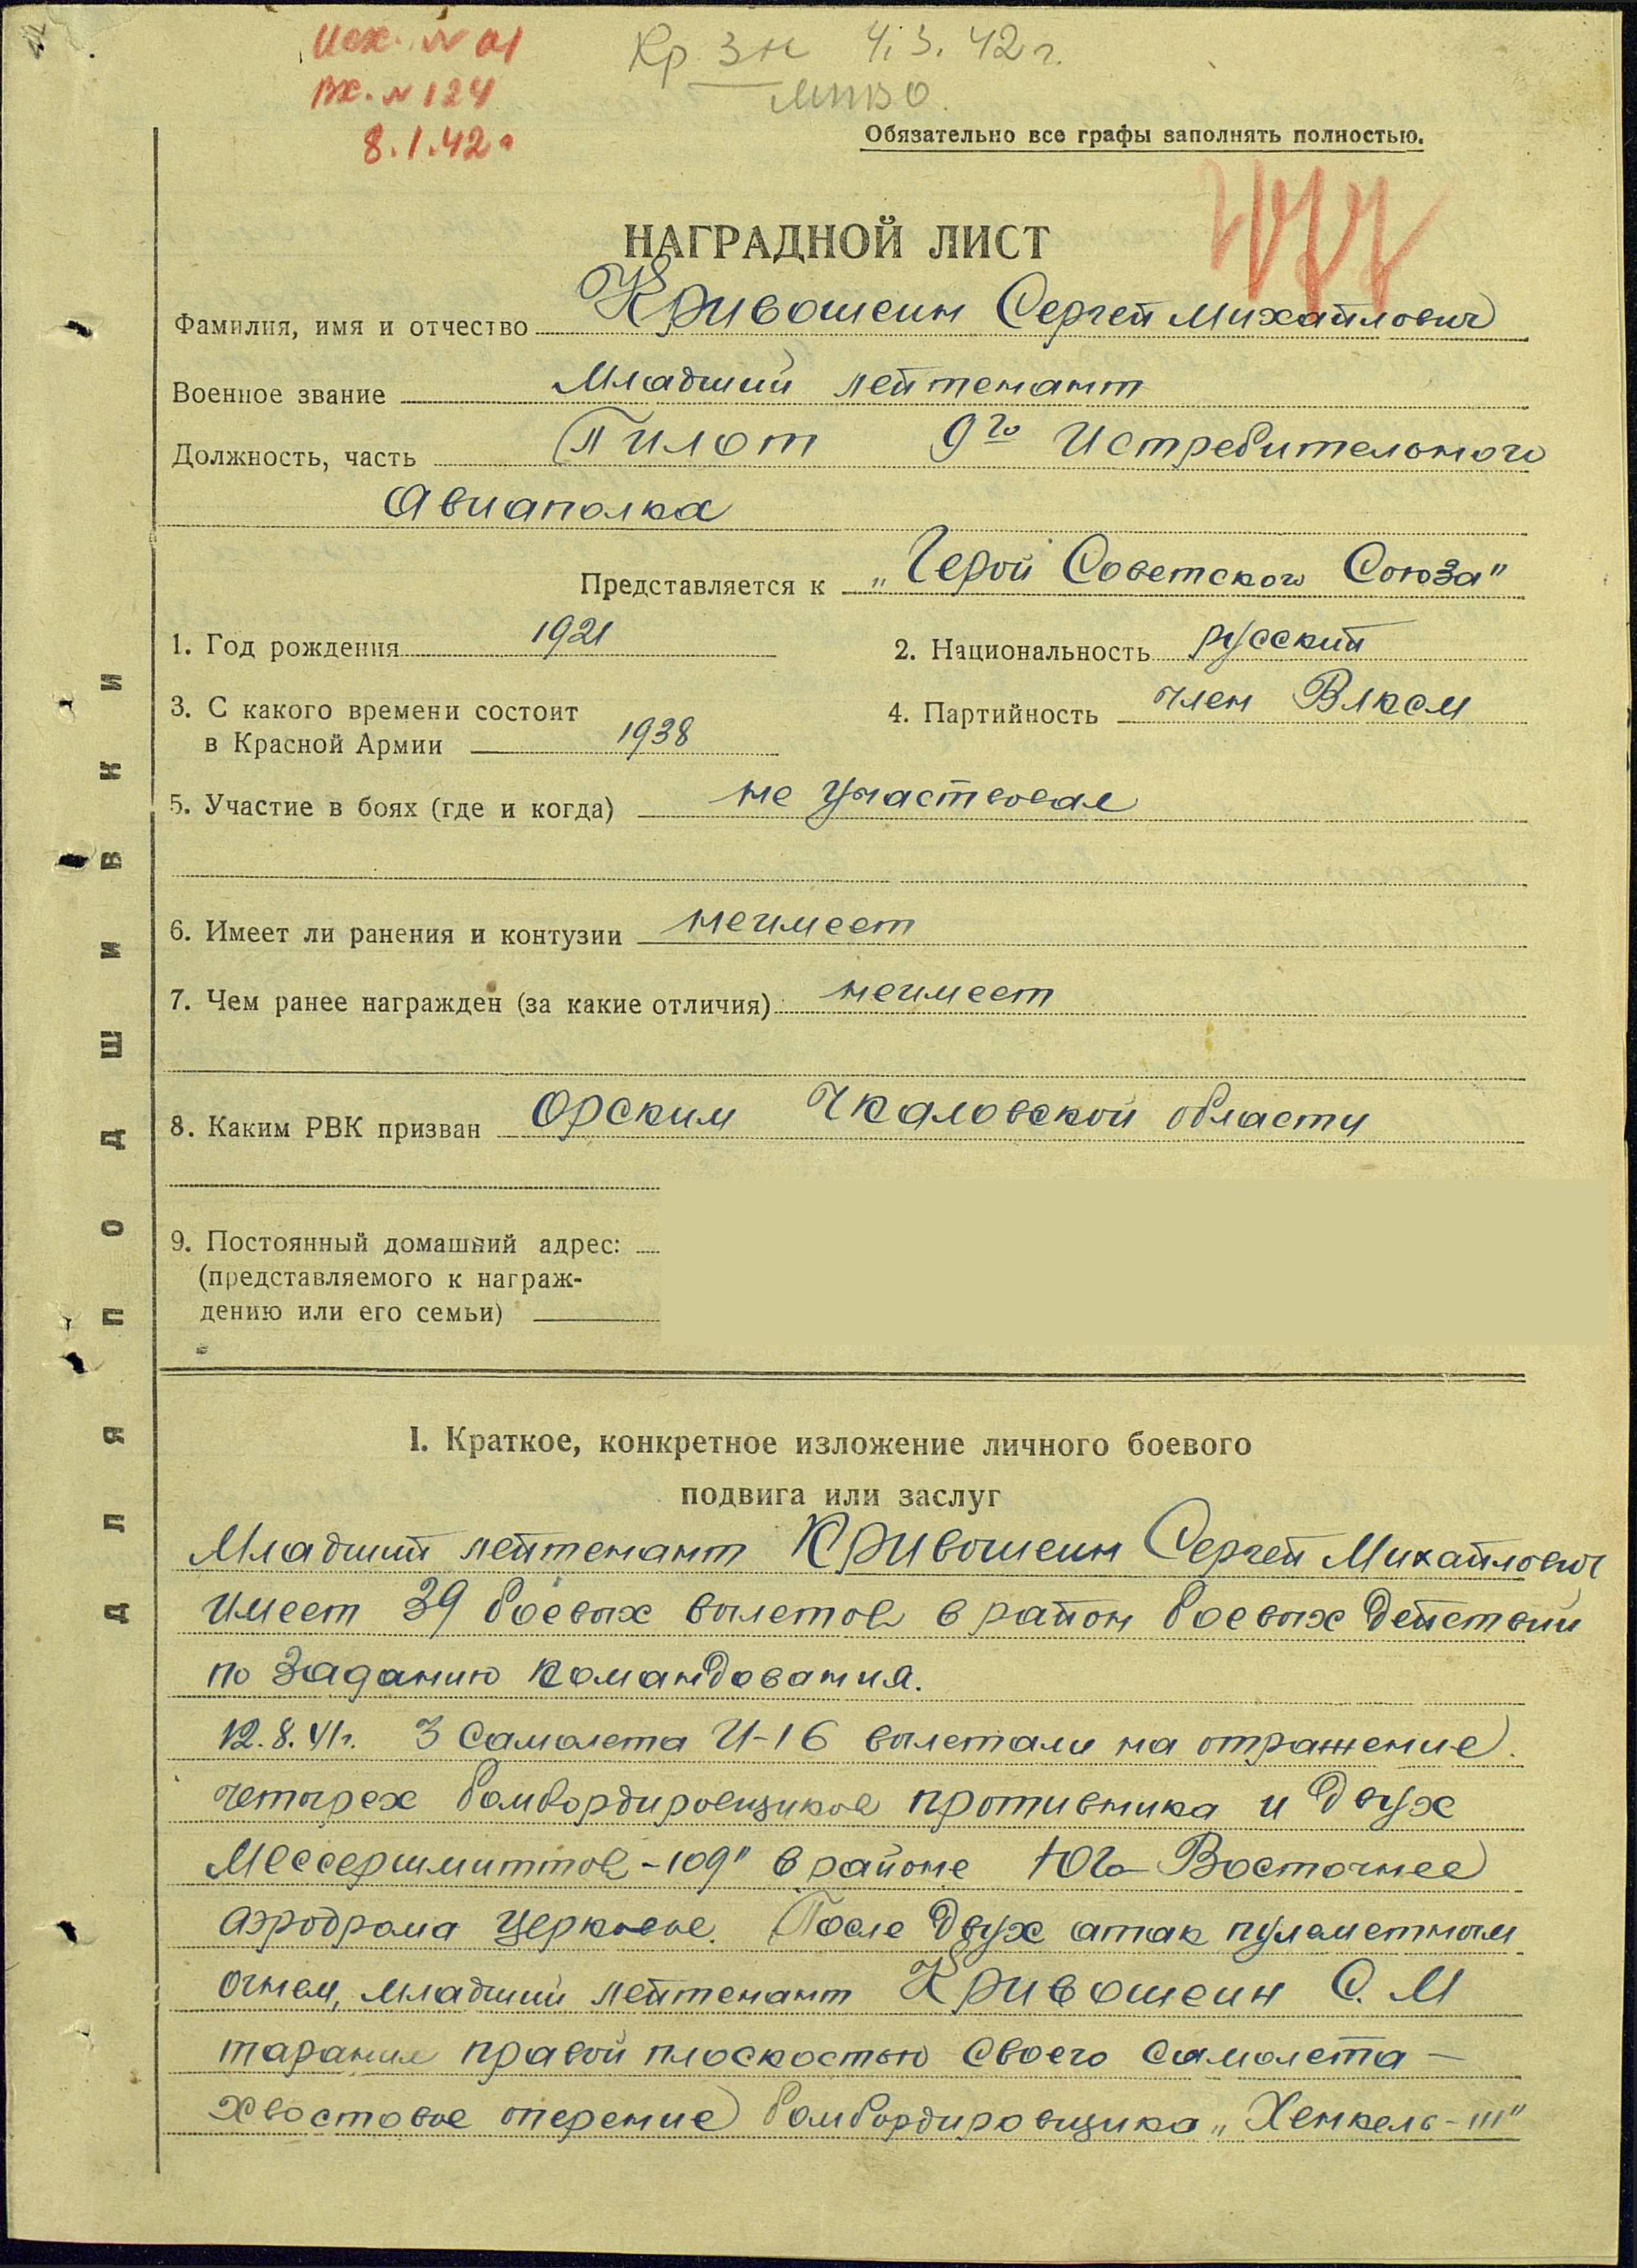 Исх. N 01
Вх. N 124
8.1.42г
Кр. Зн 4.3.42г.
МПВО.
Обязательно все графы заполнять полностью.
НАГРАДНОЙ ЛИСТ
Фамилия, имя и отчество Кривошеин Сергей Михайлович
Военное звание Младший лейтенант
Должность, часть Пилот 9го Истребительного
Авиаполка
Представляется к „Герой Советского Союза"
1. Год рождения 1921
2. Национальность русский
3. С какого времени состоит
в Красной Армии 1938
4. Партийность член ВЛКСМ
5. Участие в боях (где и когда) не участвовал
6. Имеет ли ранения и контузии неимеет
7. Чем ранее награжден (за какие отличия) неимеет
8. Каким РВК призван Орским Чкаловской области
9. Постоянный домашний адрес:
(представляемого к награж-
дению или его семьи)
I. Краткое, конкретное изложение личного боевого
подвига или заслуг
Младший лейтенант Кривошеин Сергей Михайлович
имеет 39 боевых вылетов в район боевых действий
по заданию командования.
12.8.41г. 3 самолета И-16 вылетали на отражение
четырех бомбордировщиков противника и двух
Мессершмиттов-109" в районе Юго-Восточнее
аэродрома Церковное. После двух атак пулеметным
огнем, младший лейтенант Кривошеин С. М
таранил правой плоскостью своего самолета –
хвостовое оперение бомбордировщика „Хенкель-111"
ДЛЯ ПОДШИВКИ